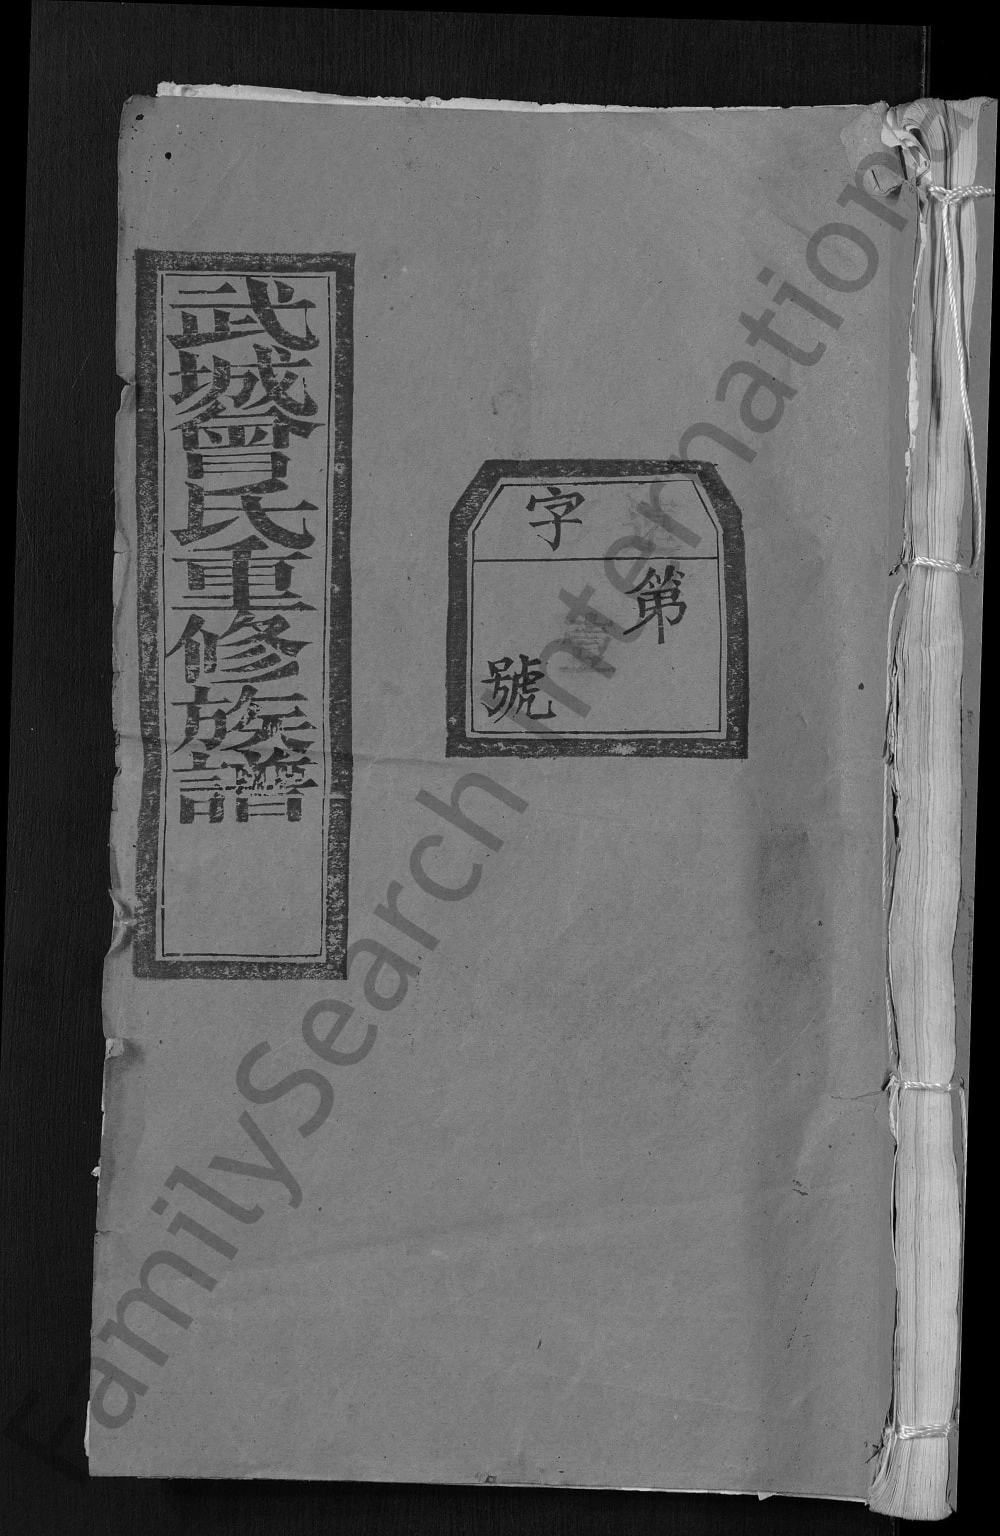 武城曾氏重修族譜
字
第
號
FamilySearch International